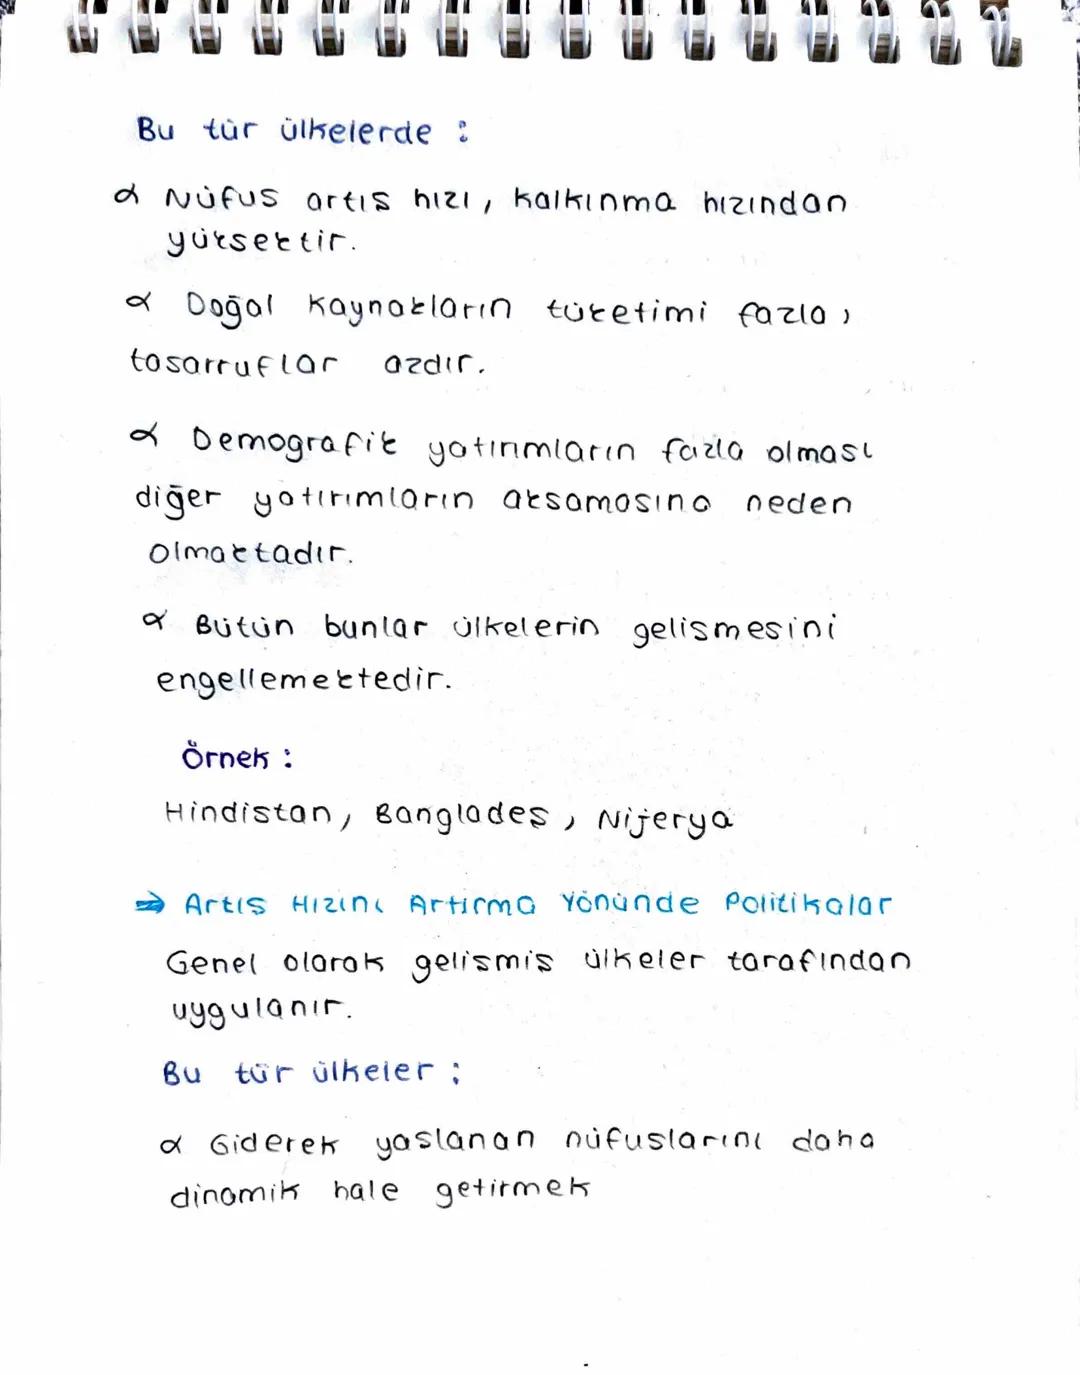 Bu tür ülkelerde :
α Nüfus artış hızı, kalkınma hızından
yüksektir.
α Doğal kaynakların tüketimi fazla,
tasarruflar azdır.
α Demografik yatırımların fazla olması
diğer yatırımların aksamasına neden
olmaktadır.
α Bütün bunlar ülkelerin gelişmesini
engellemektedir.
Örnek :
Hindistan, Bangladeş, Nijerya
⇒ Artış Hızını Artırma Yönünde Politikalar
Genel olarak gelişmiş ülkeler tarafından
uygulanır.
Bu tür ülkeler ;
α Giderek yaşlanan nüfuslarını daha
dinamik hale getirmek